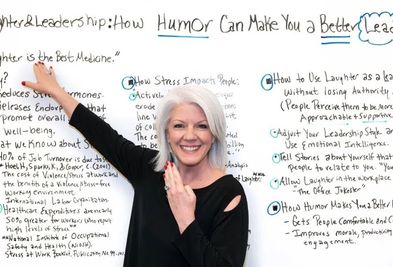 ghter & Leadership: How Humor Can Make You a Better Lead
ghter is the Best Medicine."
y?
educes Stress Hormones.
eleases Endorphins that
promote overall
well-being.
at we Know About S
40% of Job Turnover is due to
*Hoel, H., Sparks, K., & Cooper, C. (2001)
The cost of Violence/Stress at work and
the benefits of a Violence/Stress-free
working environment.
International Labor Organization
Healthcare Expenditures are nearly
50% greater for workers who report
high levels of Stress**
**National Institute of Occupational
Safety and Health (NIOSH).
Stress at Work Booklet. Publication No. 99-
How Stress Impacts People
Actively
erode
line
of col
The c
to
Analysis
Laughter,
How to Use Laughter as a Lea
without Losing Authority.
(People Perceive them to be more
Approachable & Supportive
Adjust Your Leadership Style and
Use Emotional Intelligence.
Tell Stories About Yourself that
people to relate to you. "You
Allow Laughter in the workplace
"The Office Jokester"
How Humor Makes You a Better L
- Gets People Comfortable and C
- Improves morale, productivity
engagement.